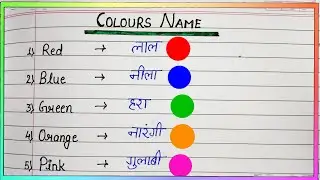 COLOURS NAME
1) Red → लाल
2) Blue → नीला
3) Green → हरा
4) Orange → नारंगी
5) Pink → गुलाबी